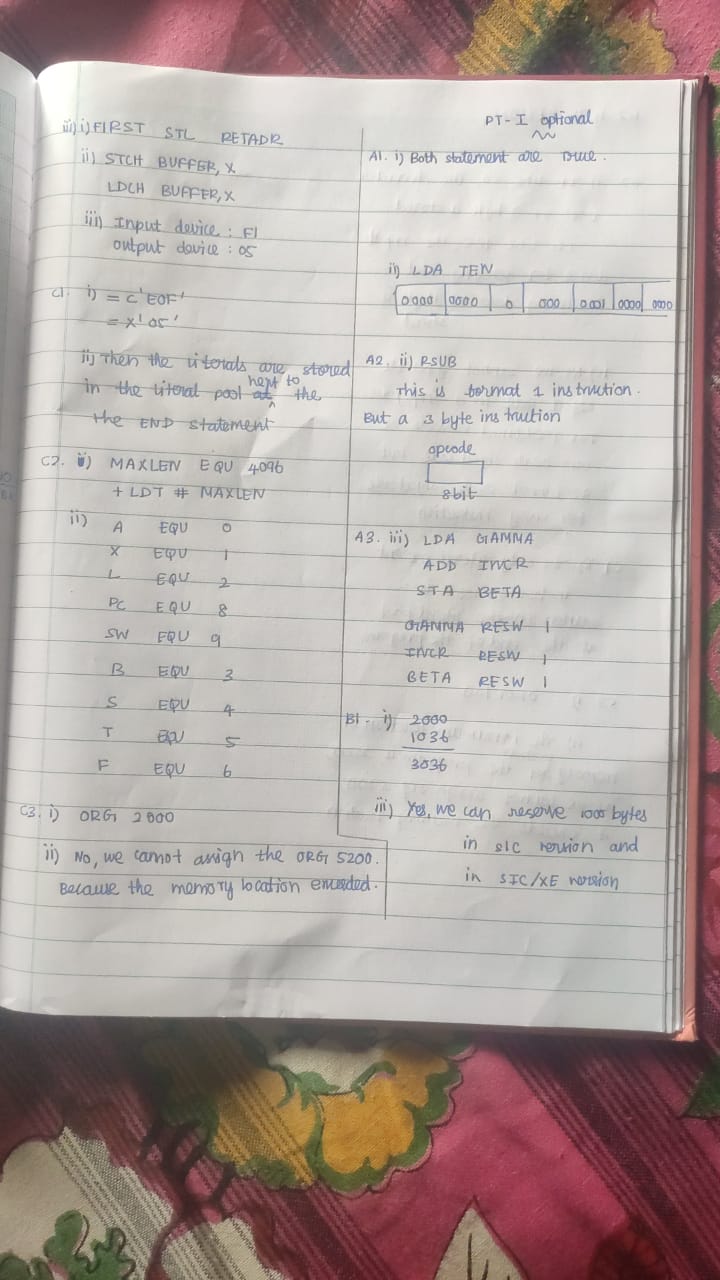 iii) i) FIRST STL RETADR
ii) STCH BUFFER, X
LDCH BUFFER, X
iii) Input device : F1
output device : 05
C1. i) = C'EOF'
= X'05'
ii) Then the literals are stored
in the literal pool next to the
the END statement
C2. i) MAXLEN EQU 4096
+ LDT # MAXLEN
ii) A EQU 0
X EQU 1
L EQU 2
PC EQU 8
SW EQU 9
B EQU 3
S EQU 4
T EQU 5
F EQU 6
C3. i) ORG 2000
ii) No, we cannot assign the ORG 5200.
Because the memory location exceeded.
PT - I optional
A1. i) Both statement are True.
ii) LDA TEN
0000 0000 0 000 0001 0000 0000
A2. ii) RSUB
This is format 1 instruction.
But a 3 byte instruction
opcode
8bit
A3. iii) LDA GAMMA
ADD INCR
STA BETA
GAMMA RESW 1
INCR RESW 1
BETA RESW 1
B1 - i) 2000
1036
3036
iii) Yes, we can reserve 1000 bytes
in SIC version and
in SIC/XE version